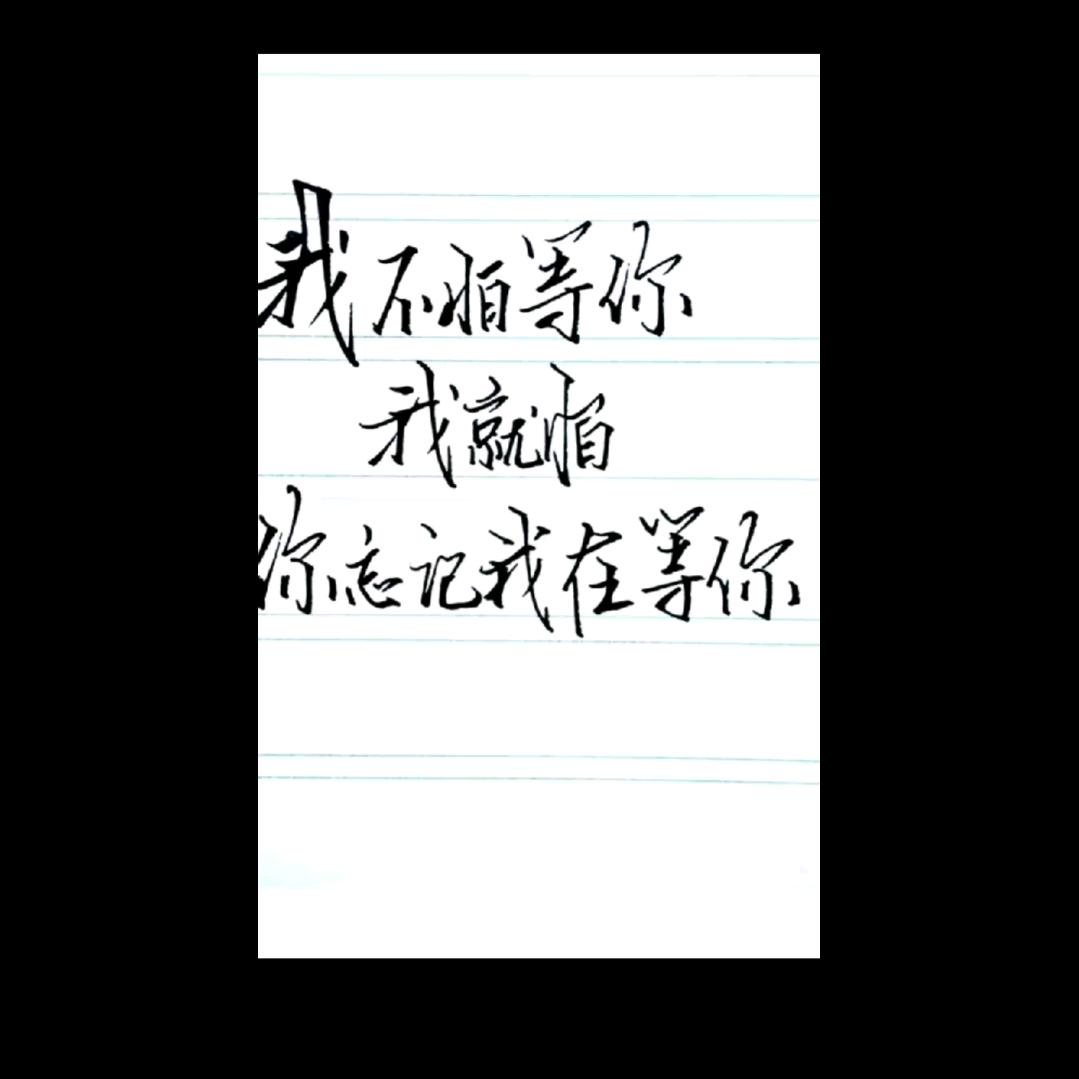 我不怕等你
我就怕
你忘记我在等你